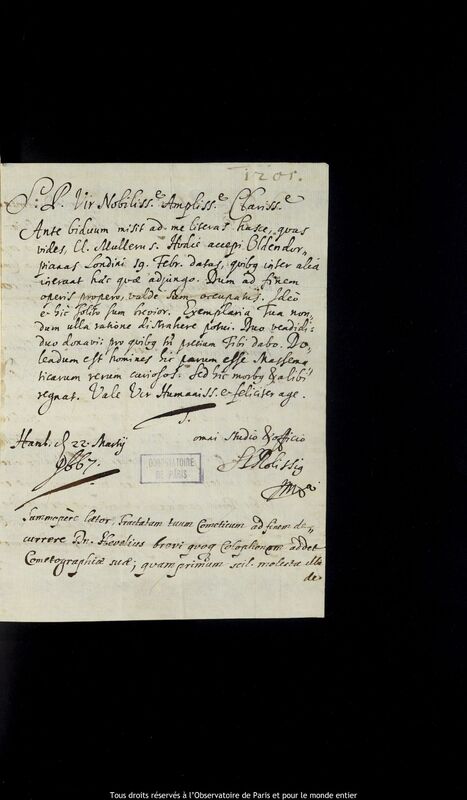 1201.
S: P. Vir Nobiliss.e Ampliss.e Clariss.e
Ante biduum misit ad me literas hasce, quas
vides, Cl. Mullerus. Hodie accepi Oldenbor-
gianas Londini 19. Febr. datas, quibq inter alia
inerant hæc quæ adjungo. Dum ad finem
operis propero, valde sum occupatus. Ideò
& hic solito sum brevior. Exemplaria Tua non-
dum ulla ratione distrahere potui. Duo vendidi:
duo donavi: pro quibq hîc pretium Tibi dabo. Do-
lendum est homines hîc parum esse Mathema-
ticarum rerum curiosos: Sed hic morbq & alibi
regnat. Vale Vir Humaniss.e & feliciter age.
T.
omni studio & officio
Hamb. d 22. Martij
1667.
OBSERVATOIRE
DE PARIS
Summopere lætor, Tractatum tuum Cometicum ad finem de-
currere. Dn. Hevelius brevi quoq Colophonem addet
Cometographiæ suæ; quamprimùm scil. molesta illa
de-
Tous droits réservés à l'Observatoire de Paris et pour le monde entier